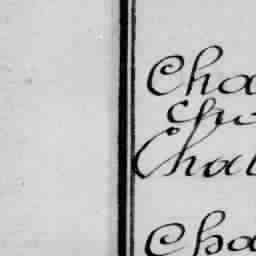 Cha
Cho
Chal
Cha